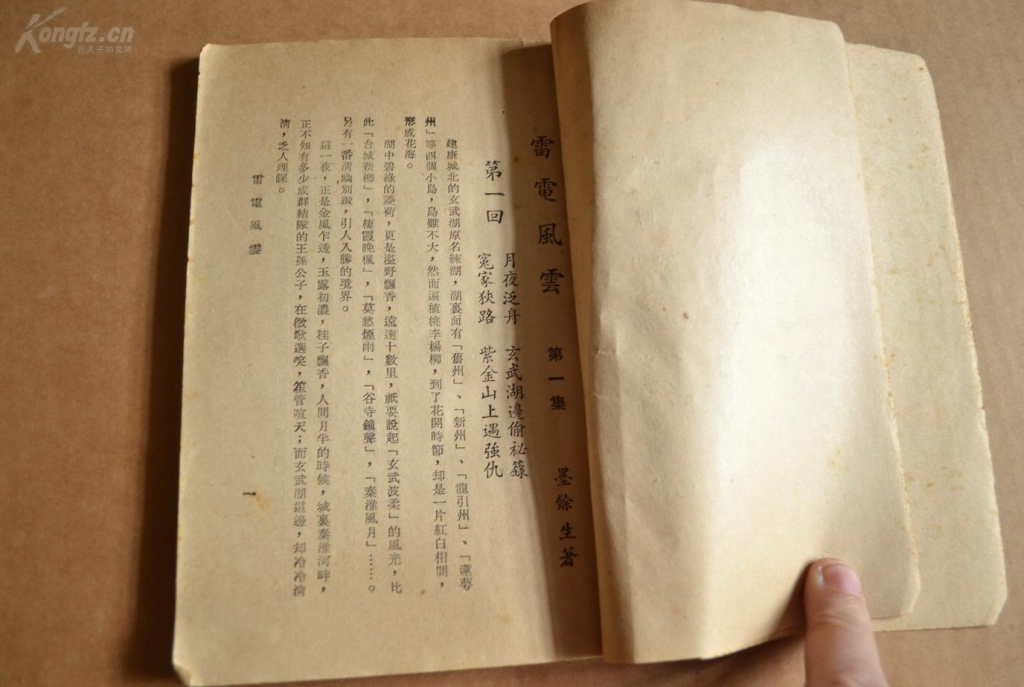 Kongfz.cn
孔夫子旧书网
雷電風雲 第一集 墨餘生著
第一回
月夜泛舟 玄武湖邊偷祕籙
冤家狹路 紫金山上遇強仇
建康城北的玄武湖原名練湖,湖裏面有「舊州」、「新州」、「龍引州」、「蓮萼
州」等四個小島,島雖不大,然而遍植桃李楊柳,到了花開時節,却是一片紅白相間,
形成花海。
湖中碧綠的菱荷,更是溢野飄香,遠達十數里,祇要說起「玄武波柔」的風光,比
此「台城新柳」,「棲霞晚楓」,「莫愁煙雨」,「谷寺鐘聲」,「秦淮風月」……。
另有一番清幽別緻,引人入勝的境界。
這一夜,正是金風乍透,玉露初濃,桂子飄香,人間月半的時候,城裏秦淮河畔,
正不知有多少成群結隊的王孫公子,在徵歌選笑,笙管喧天;而玄武湖這邊,却冷冷清
清,乏人理睬。
雷電風雲
一